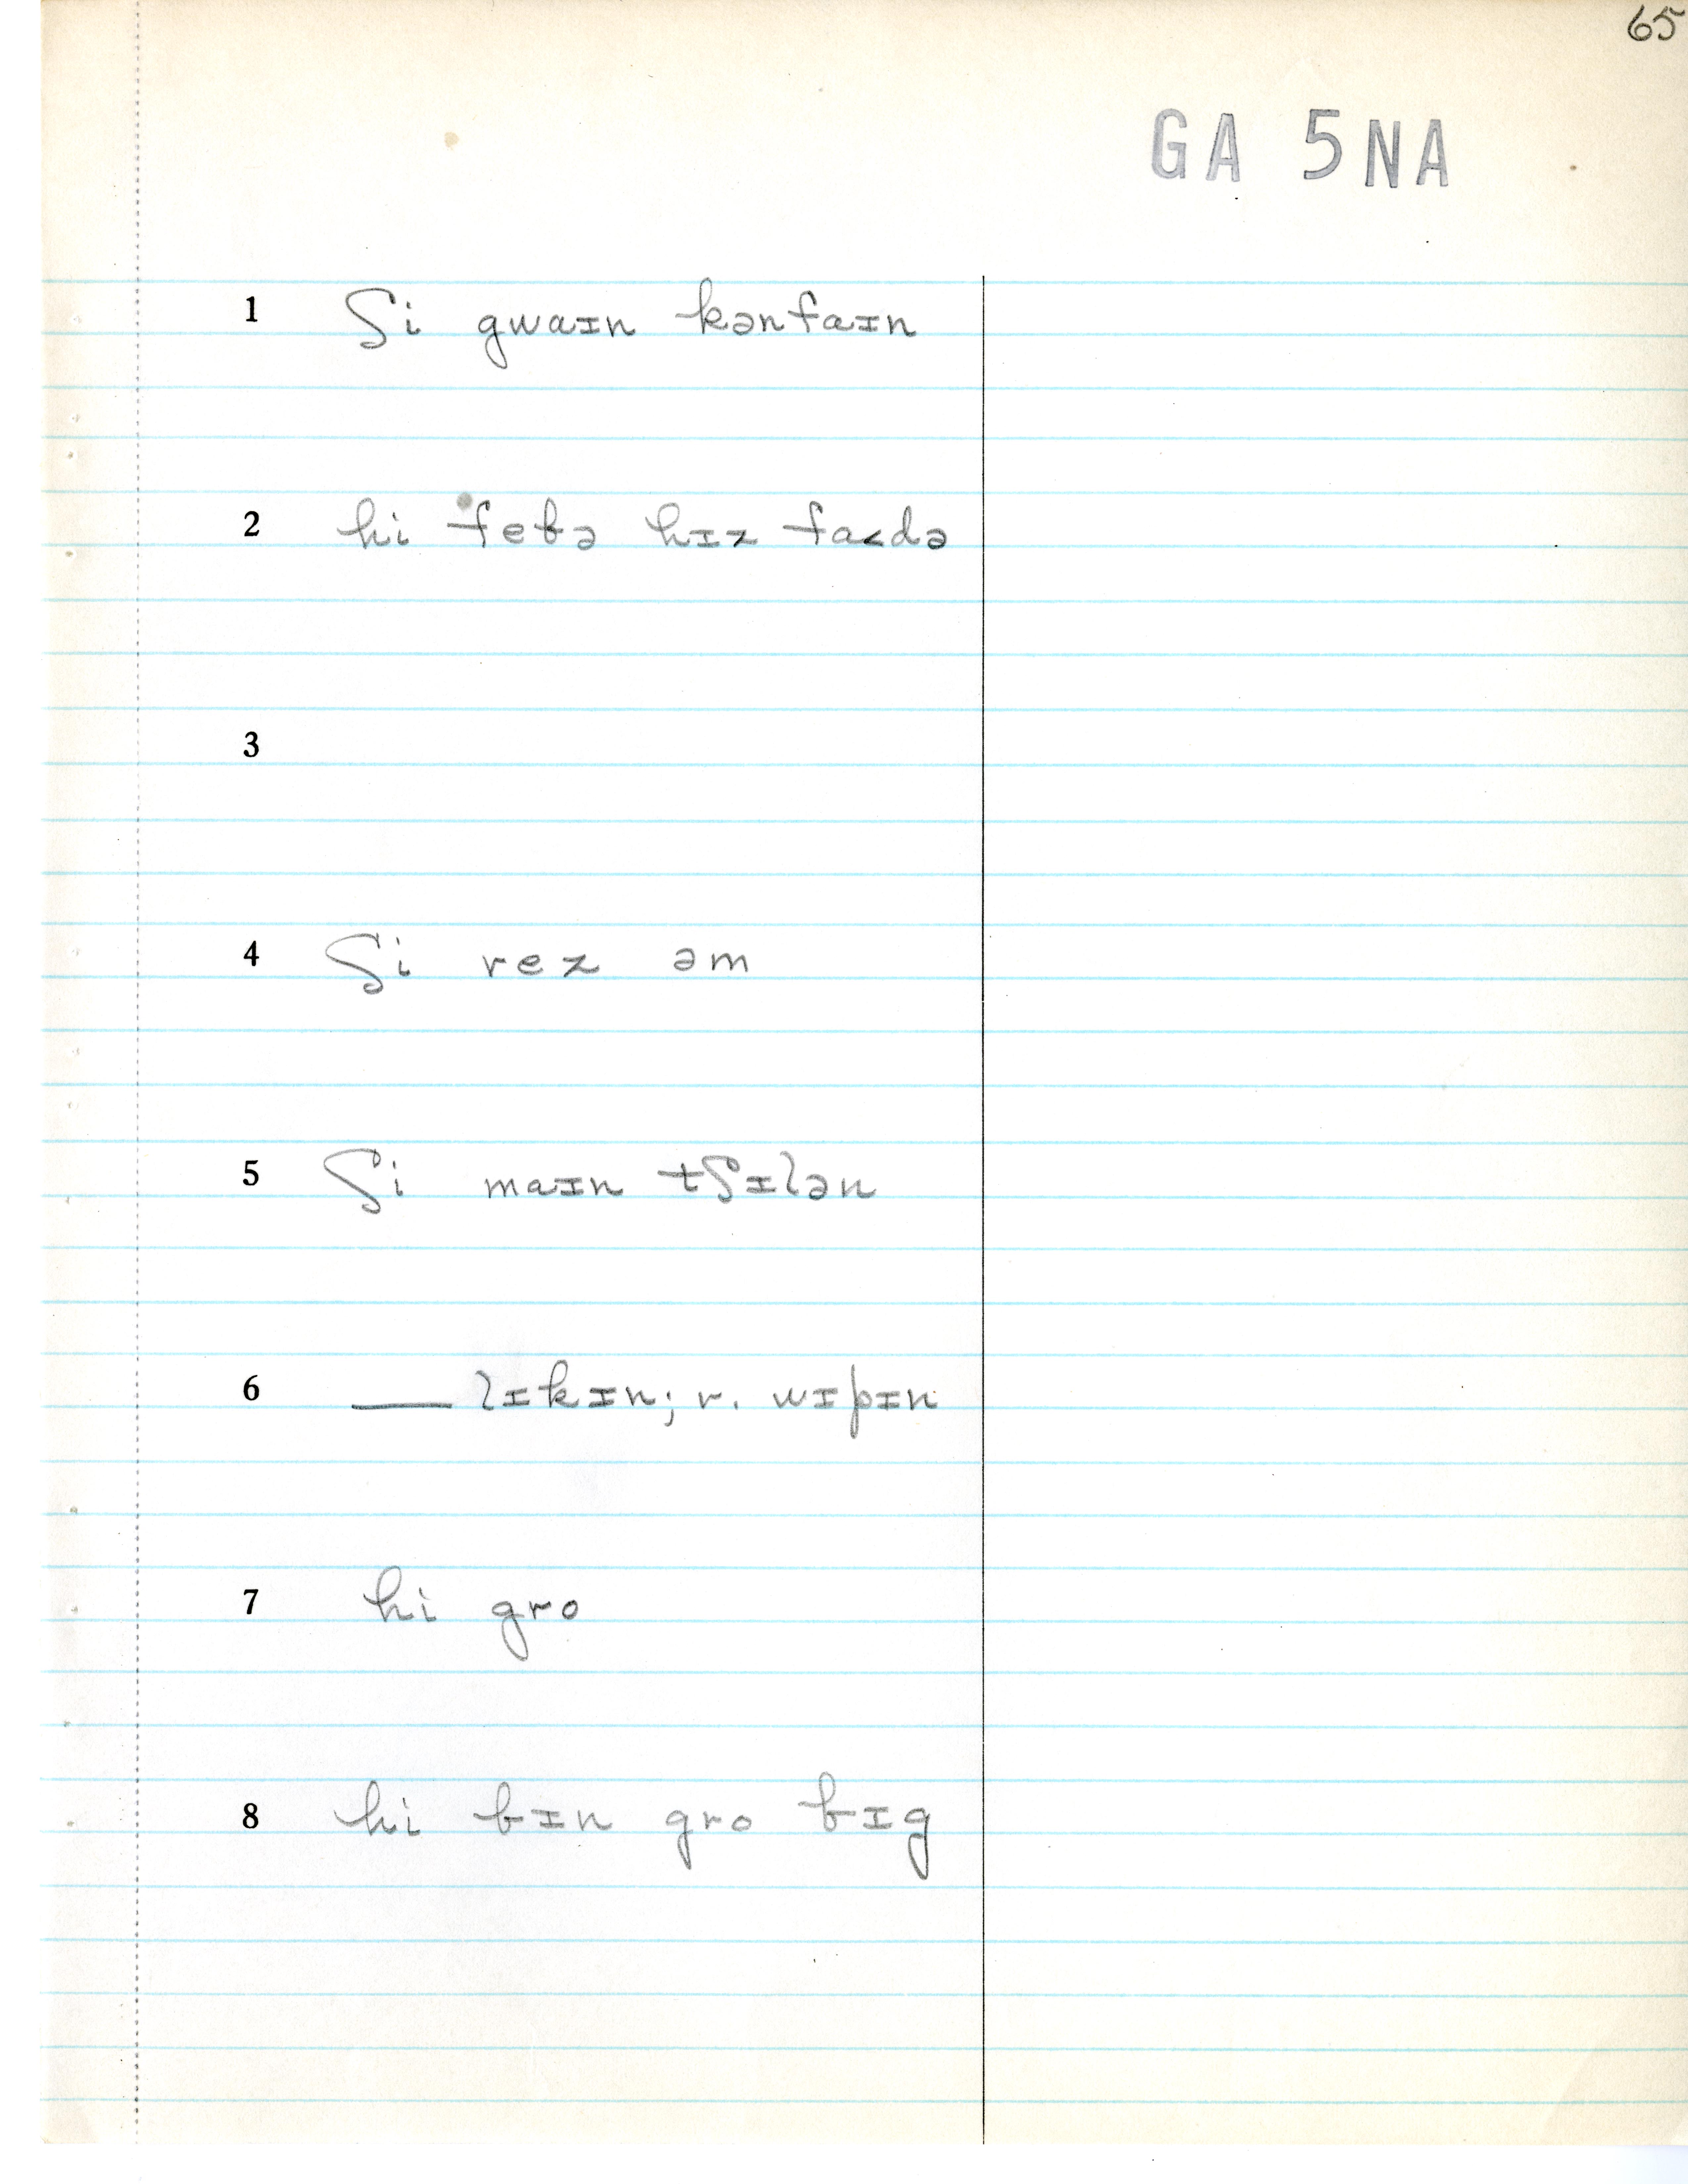 65
GA 5NA
1 ʃi gwaɪn kənfaɪn
2 hi febə hɪz fa˂də
3
4 ʃi rez əm
5 ʃi maɪn tʃɪlən
6 ___ lɪkɪn; r. wɪpɪn
7 hi gro
8 hi bɪn gro bɪg